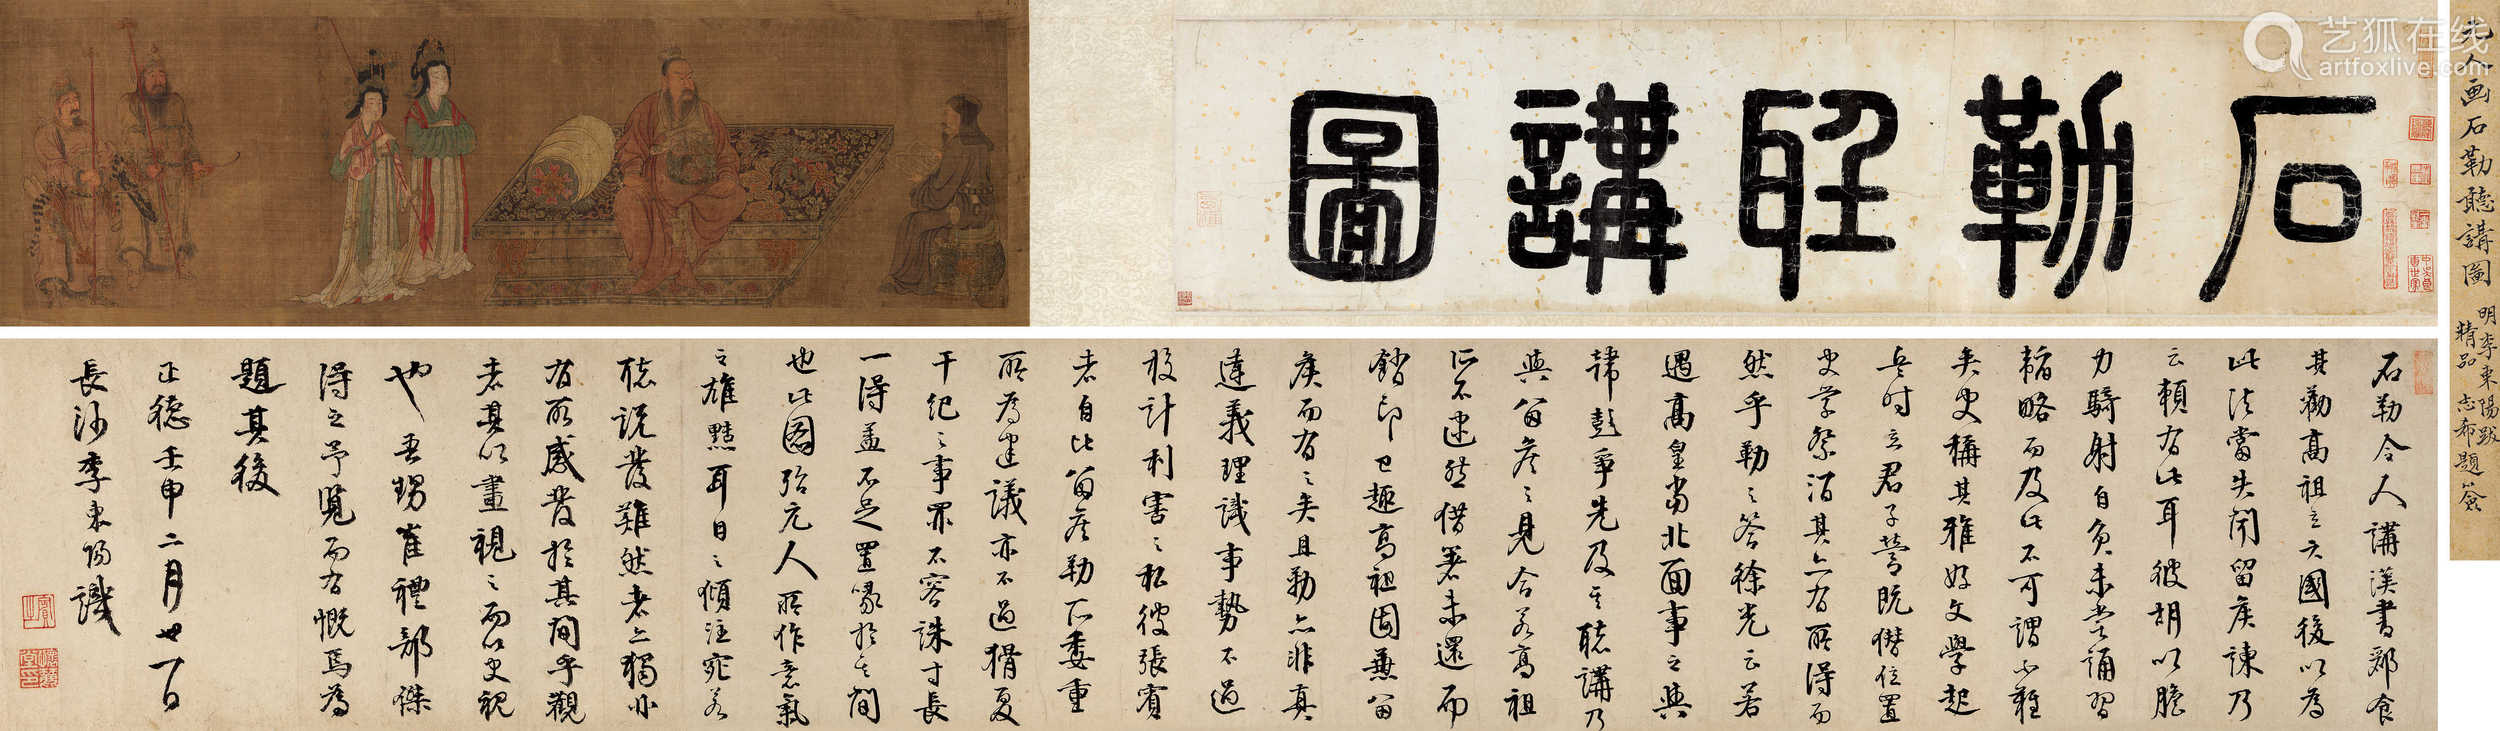 元人画石勒聽講圖
明李東陽跋
精品 志希題簽
石勒聽講圖
石勒令人講漢書酈食
其勸高祖立六國後以為
此法當失聞留侯諫乃
云賴有此耳彼胡以膽
力騎射自負未嘗誦習
韜略而及此不可謂不難
矣史稱其雅好文學起
兵時立君子營既僭位置
史學祭酒其亦有所得而
然乎勒之答徐光云若
遇高皇當北面事之與
韓彭爭先及其聽講乃
與留侯之見合若高祖
所不逮然借箸未還而
銷印已趣高祖固無留
侯而有之矣且勒亦非真
達義理識事勢不過
校計利害之私彼張賓
者自比留侯勒所委重
所為建議亦不過猾夏
干紀之事罪不容誅寸長
一得蓋不足置喙於其間
也此圖殆元人所作意氣
之雄黠耳目之傾注宛若
聴說發難然者亦獨非
有所感發於其間乎觀
者其以畫視之而以史視
也吾甥崔禮部傑
得之予覽而有慨焉為
題其後
正德壬申二月廿一日
長沙李東陽識
艺狐在线
artfoxlive.com